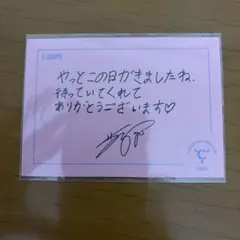 やっとこの日がきましたね、
待っていてくれて
ありがとうございます♡